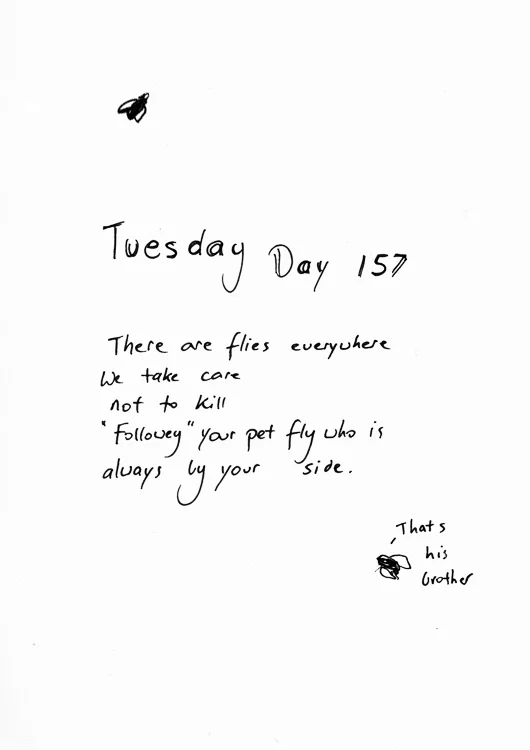 Tuesday Day 157
There are flies everywhere
We take care
not to kill
"Followey" your pet fly who is
always by your side.
Thats
his
brother